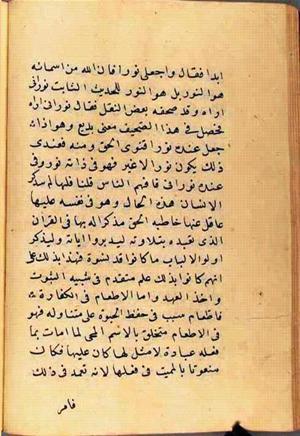 ابدا فقال واجعلنى نورا فان الله من اسمائه
هو النور بل هو النور للحديث الثابت نورانى
اراه وقد صحفه بعض النقل فقال نورانى اراه
فحصل فى هذا التصحيف معنى بديع وهو اذا
جعل عنده نورا فنوى الحق ومنه فعندى
ذلك يكون نورا لا غير فهو فى ذاته نور وفى
عنده نورانى فافهم الناس قلنا فلما لم يتذكر
الانسان هذه الحال وهو فى نفسه عليها
غافل عنها خاطبه الحق مذكرا له بها فى القران
الذى تعبده بتلاوته ليدبروا اياته وليتذكر
اولوا الالباب ما كانوا قد نسوه فهذا يدلك على
انهم كانوا بذلك علم متقدم فى شيئية الثبوت
واخذ العهد واما الاطعام فى الكفارة
فالطعام سبب فى حفظ الحيوة على متناوله فهو
فى الاطعام متخلق بالاسم المحى لما امات بما
فعله عبادة لا مثل لها كان عليها فكان
منعوتا بالمميت فى فعلها لانه تعمد فى ذلك
فامر